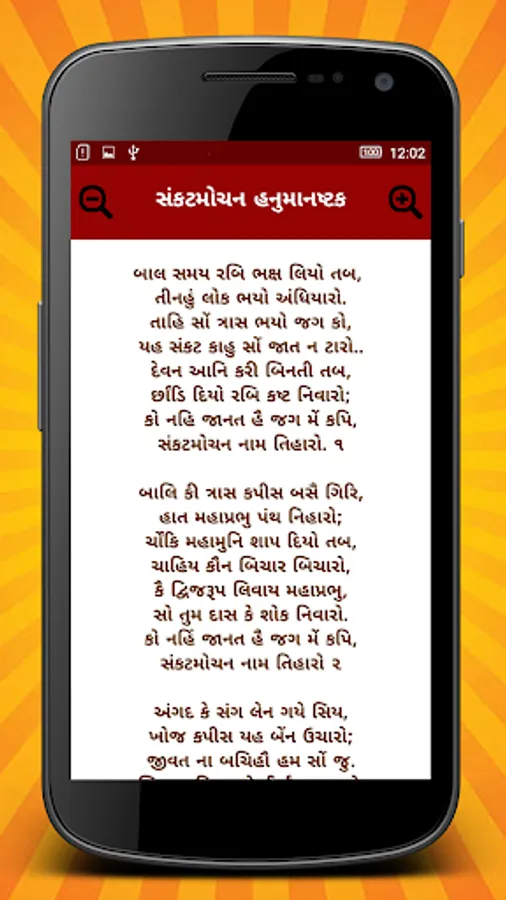 100 12:02
સંકટમોચન હનુમાનષ્ટક
બાલ સમય રબિ ભક્ષ લિયો તબ,
તીનહું લોક ભયો અંધિયારો.
તાહિ સોં ત્રાસ ભયો જગ કો,
યહ સંકટ કાહુ સોં જાત ન ટારો..
દેવન આનિ કરી બિનતી તબ,
છાઁડિ દિયો રબિ કષ્ટ નિવારો;
કો નહિ જાનત હૈ જગ મેં કપિ,
સંકટમોચન નામ તિહારો. ૧
બાલિ કી ત્રાસ કપીસ બસૈ ગિરિ,
હાત મહાપ્રભુ પંથ નિહારો;
ચોંકિ મહામુનિ શાપ દિયો તબ,
ચાહિય કૌન બિચાર બિચારો,
કૈ દ્વિજરૂપ લિવાય મહાપ્રભુ,
સો તુમ દાસ કે શોક નિવારો.
કો નહિં જાનત હૈ જગ મેં કપિ,
સંકટમોચન નામ તિહારો ૨
અંગદ કે સંગ લેન ગયે સિય,
ખોજ કપીસ યહ બેંન ઉચારો;
જીવત ના બચિહૌ હમ સોં જુ.